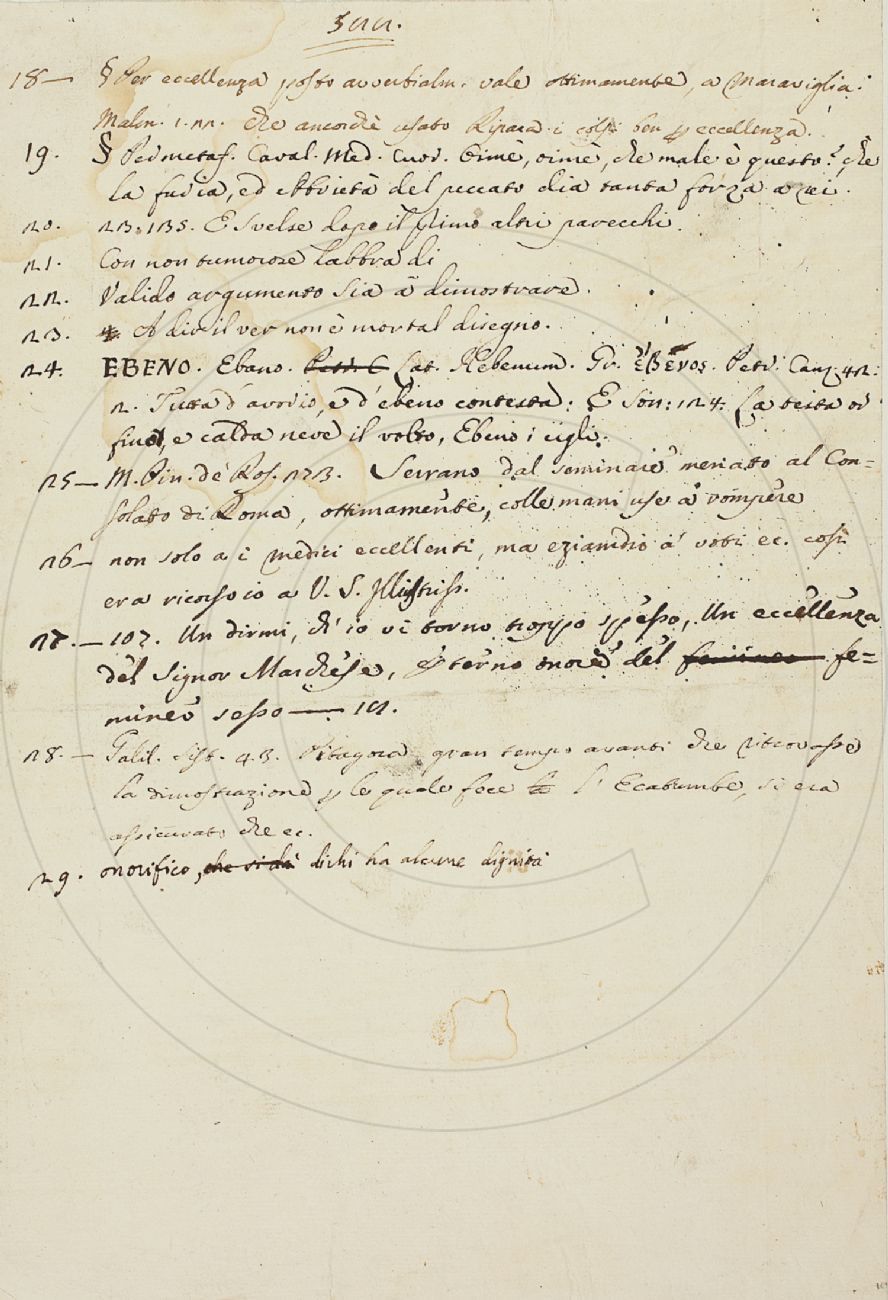 522.
18— § Per eccellenza posto avverbialm. vale ottimamente, a maraviglia.
Malm. 1. 22. Che ancorchè usato Ripara i colpi ben p eccellenza.
19. § Per metaf. Caval. Med. Cuor. Oimè, oimè, che male è questo? che
la furia, ed ebbrietà del peccato dia tanta forza a rei.
20. 23. 135. E svelse dopo il primo altri parecchi.
21. Con non tumorose labbra di
22. Valido argumento sia a dimostrare.
23. A dio il ver non è mortal disegno.
24. EBENO. Ebano. Petr. C Lat. Hebenum. Gr. ἔβενος. Petr. Canz. 42.
2. Tutta d'avorio, e d'ebeno contesta: E Son. 124. La testa or
fino, e calda neve il volto, Ebeno i cigli.
25— M. Pin. de Ros. 273. Serrano dal seminare menato al Con=
solato di Roma, ottimamente, colle mani use a rompere
26— non solo a i medici eccellenti, ma eziamdio a' voti ec. così
era ricorso io a V. S. Illustriss.
27.— 107. Un dirmi, ch' io vi torno troppo spesso, Un eccellenza
del Signor Marchese, p eterno onore del femineo fe=
mineo sesso — 101.
28.— Galil. Sist. 43. Pitagora gran tempo avanti che ritrovasse
la dimostrazione p le quale fece la l' Ecatumbe, si era
assicurato che ec.
29. onorifico, che si da' dichi ha alcune dignità